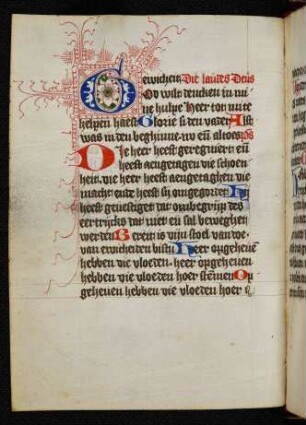 ewichen Die laudes Deus
Od wilt dencken in mi
ne hulpe Heer tot mi te
helpen haest Glorie si den vader Alst
was in den beghinne nv eñ altoes ps
Die heer heeft geregneert eñ
heeft aengetagen die schoen
heit die heer heeft aengetaghen die
macht ende heeft si omgegordet
heeft gevesticht dat ombegrijp des
eertrijcs dat niet en sal beweghen
werden Gereit is dijn stoel van
ewicheiden bistu Heer opgheheuē
hebben die vloeden heer opgeheuen
hebben die vloeden hoer stemen Op
geheuen hebben die vloeden hoer